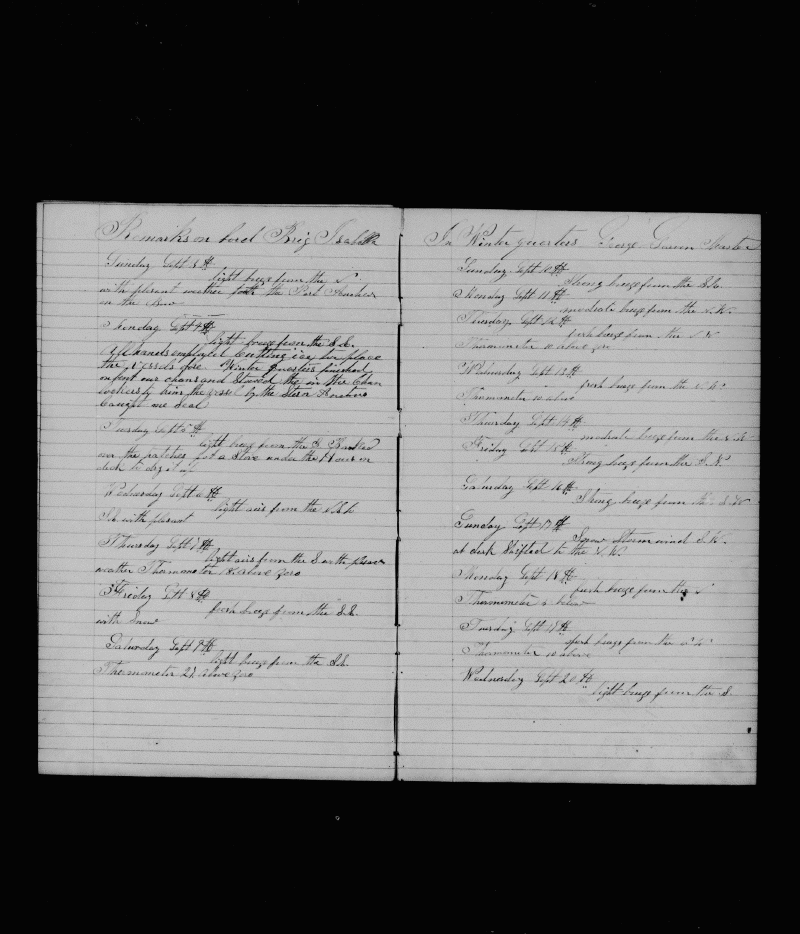 Remarks on bord Brig Isabella
Sunday Sept 3th
light breze from the N
with plesant weather
in the Bow
Monday Sept 4th
light breze from the S.E.
All hands employed Cutting ice for place
the vessels fore Winter quarters finished
our chans and the in the
the vessel by the Stern
Caught one Seal
Tuesday Sept 5th
light breze from the S
over the for a Stove under the House on
deck to dry it up
Wednesday Sept 6th
light airs from the
S.E. with plesant
Thursday Sept 7th
light airs from the S with plesant
weather Thermometer above Zero
Friday Sept 8th
fresh breze from the S.E.
with Snow
Saturday Sept 9th
light breze from the S.E.
Thermometer 21 above Zero
In Winter quarters George Master
Sunday Sept 10th
Strong breze from the S.E.
Monday Sept 11th
moderate breze from the N.W.
Tuesday Sept 12th
fresh breze from the N W
Thermometer 10 above zero
Wednesday Sept 13th
fresh breze from the N.W.
Thermometer 10 above
Thursday Sept 14th
moderate breze from the
Friday Sept 15th
Strong breze from the S.W.
Saturday Sept 16th
Strong breze from the S.W
Sunday Sept 17th
Snow Storm wind S.W.
at dark Shifted to the N.W.
Monday Sept 18th
fresh breze from the N
Thermometer 2 below
Tuesday Sept 19th
fresh breze from the N.W.
Thermometer 10 above
Wednesday Sept 20th
light breze from the S.